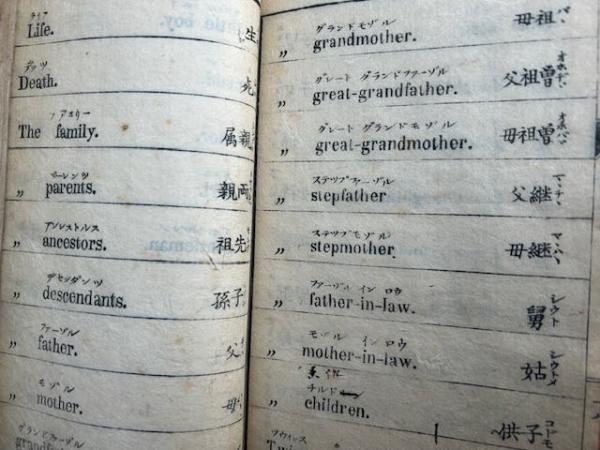 ライフ
Life. 生
デッツ
Death. 死
フアミリー
The family. 親属
ペーレンツ
„ parents. 両親
アンシストルス
„ ancestors. 先祖
デセンダンツ
„ descendants. 子孫
ファーヅル
„ father. 父
モヅル
„ mother. 母
グランドファーヅル
グランドモヅル
„ grandmother. 祖母
グレート グランドファーヅル
„ great-grandfather. 曾祖父
グレート グランドモヅル
„ great-grandmother. 曾祖母
ステップファーヅル
„ stepfather 継父
ステップモヅル
„ stepmother 継母
ファーヅル イン ロウ
„ father-in-law. 舅 シウト
モヅル イン ロウ
„ mother-in-law. 姑 シウトメ
チルド
„ children. 子供 コドモ